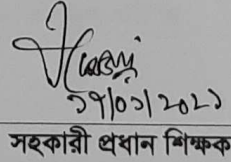 ১৭/০১/২০২১
সহকারী প্রধান শিক্ষক